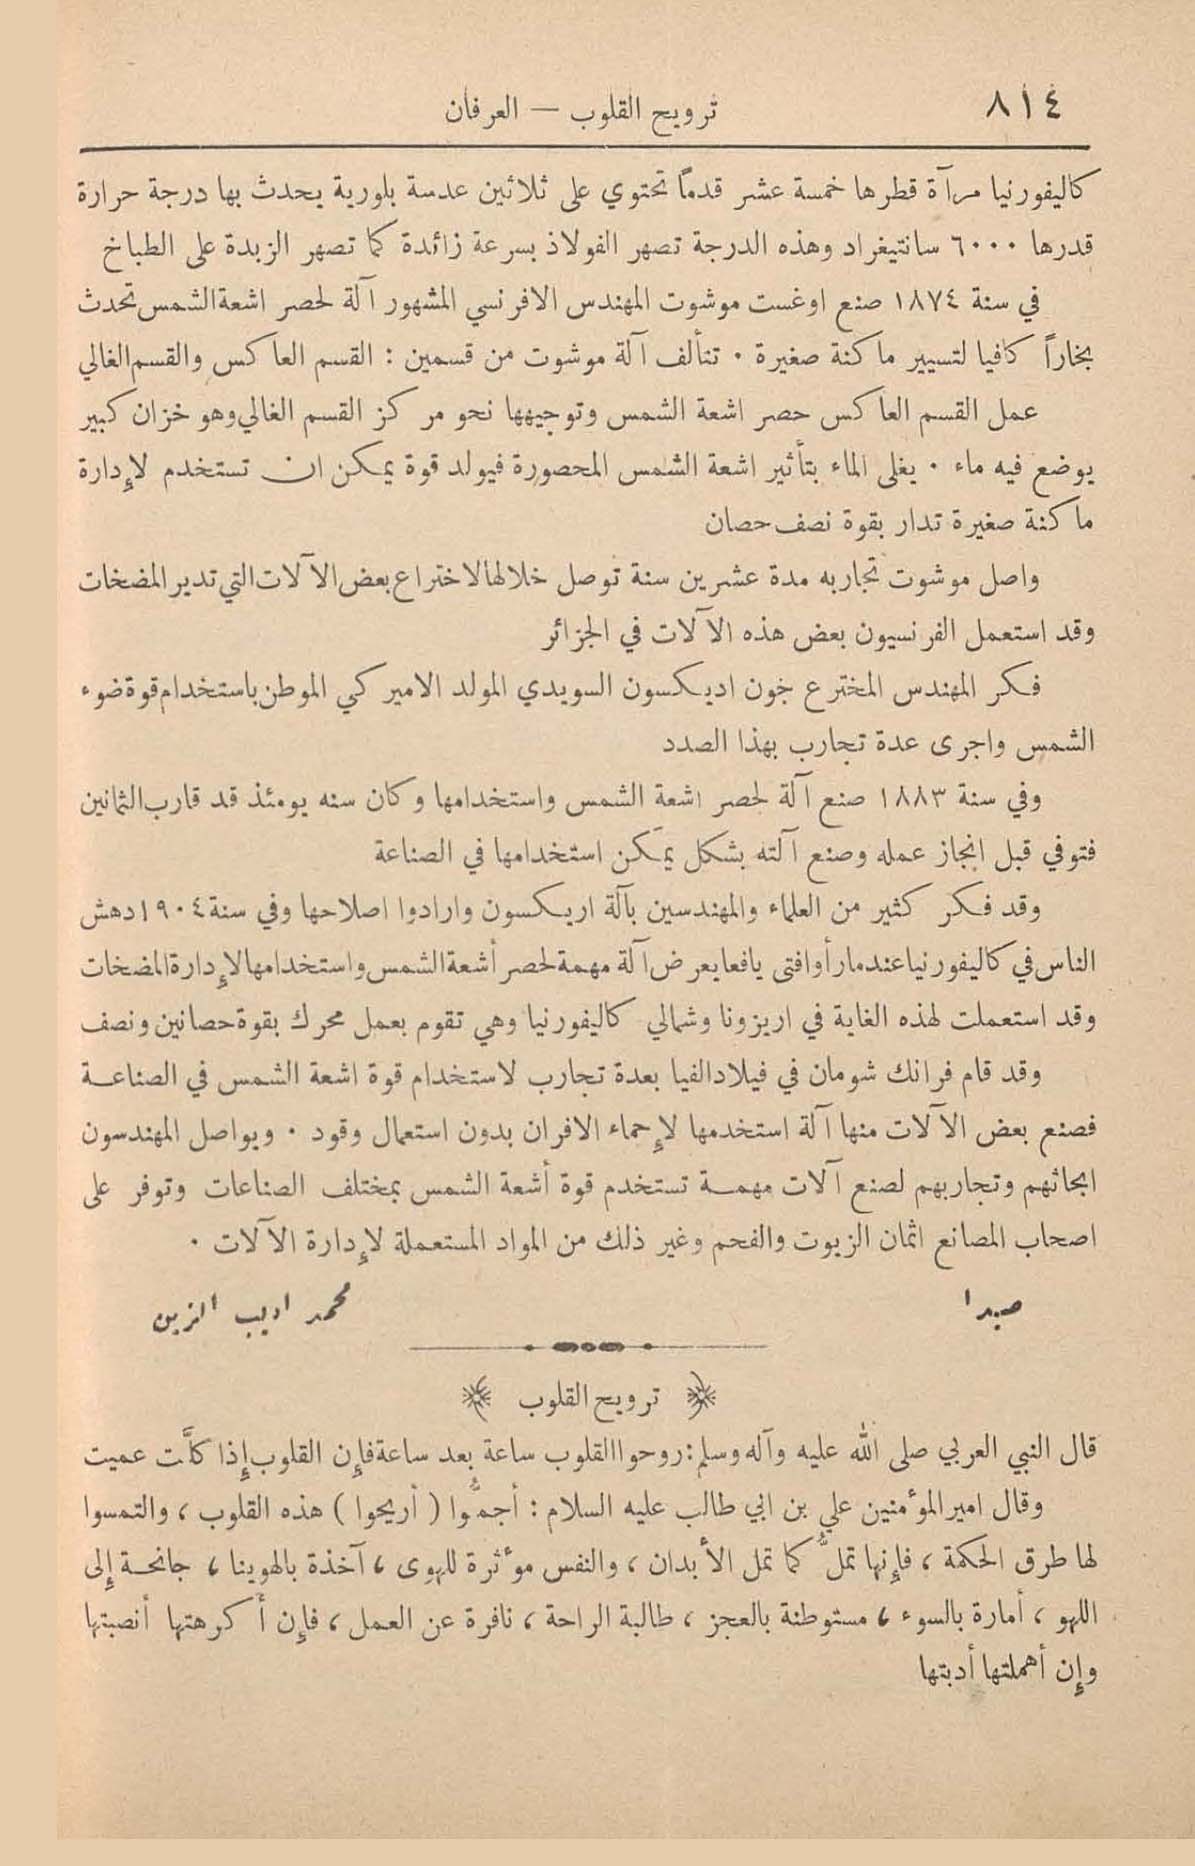 ٨١٤
ترويح القلوب — العرفان
كاليفورنيا مرآة قطرها خمسة عشر قدماً تحتوي على ثلاثين عدسة بلورية يحدث بها درجة حرارة
قدرها ٦٠٠٠ سانتيغراد وهذه الدرجة تصهر الفولاذ بسرعة زائدة كما تصهر الزبدة على الطباخ
في سنة ١٨٧٤ صنع اوغست موشوت المهندس الافرنسي المشهور آلة لحصر اشعة الشمس تحدث
بخاراً كافيا لتسيير ماكنة صغيرة . تتألف آلة موشوت من قسمين : القسم العاكس والقسم الغالي
عمل القسم العاكس حصر اشعة الشمس وتوجيهها نحو مركز القسم الغالي وهو خزان كبير
يوضع فيه ماء . يغلى الماء بتأثير اشعة الشمس المحصورة فيولد قوة يمكن ان تستخدم لإدارة
ماكنة صغيرة تدار بقوة نصف حصان
واصل موشوت تجاربه مدة عشرين سنة توصل خلالها لاختراع بعض الآلات التي تدير المضخات
وقد استعمل الفرنسيون بعض هذه الآلات في الجزائر
فكر المهندس المخترع جون اديكسون السويدي المولد الاميركي الموطن باستخدام قوة ضوء
الشمس واجرى عدة تجارب بهذا الصدد
وفي سنة ١٨٨٣ صنع آلة لحصر اشعة الشمس واستخدامها وكان سنه يومئذ قد قارب الثمانين
فتوفي قبل انجاز عمله وصنع آلته بشكل يمكن استخدامها في الصناعة
وقد فكر كثير من العلماء والمهندسين بآلة اريكسون وارادوا اصلاحها وفي سنة ١٩٠٤ دهش
الناس في كاليفورنيا عندما رأوا فتى يافعا يعرض آلة مهمة لحصر أشعة الشمس واستخدامها لإدارة المضخات
وقد استعملت لهذه الغاية في اريزونا وشمالي كاليفورنيا وهي تقوم بعمل محرك بقوة حصانين ونصف
وقد قام فرانك شومان في فيلادالفيا بعدة تجارب لاستخدام قوة اشعة الشمس في الصناعة
فصنع بعض الآلات منها آلة استخدمها لإحماء الافران بدون استعمال وقود . ويواصل المهندسون
ابحاثهم وتجاربهم لصنع آلات مهمة تستخدم قوة أشعة الشمس بمختلف الصناعات وتوفر على
اصحاب المصانع اثمان الزيوت والفحم وغير ذلك من المواد المستعملة لإدارة الآلات .
صيدا
محمد اديب الزين
ترويح القلوب
قال النبي العربي صلى الله عليه وآله وسلم : روحوا القلوب ساعة بعد ساعة فإن القلوب إذا كلَّت عميت
وقال امير المؤمنين علي بن ابي طالب عليه السلام : أجمُّوا ( أريحوا ) هذه القلوب ، والتمسوا
لها طرق الحكمة ، فإنها تملُّ كما تمل الأبدان ، والنفس مؤثرة للهوى ، آخذة بالهوينا ، جانحة إلى
اللهو ، أمارة بالسوء ، مستوطنة بالعجز ، طالبة الراحة ، نافرة عن العمل ، فإن أكرهتها أنصبتها
وإن أهملتها أدبتها